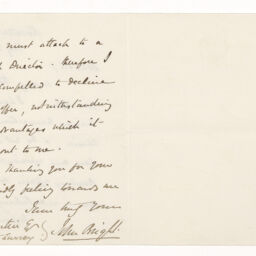 must attach to a
Director. therefore I
compelled to decline
offer, notwithstanding
advantages which it
out to me.
thanking you for your
feeling towards me
I am truly yours
John Bright.
Surrey